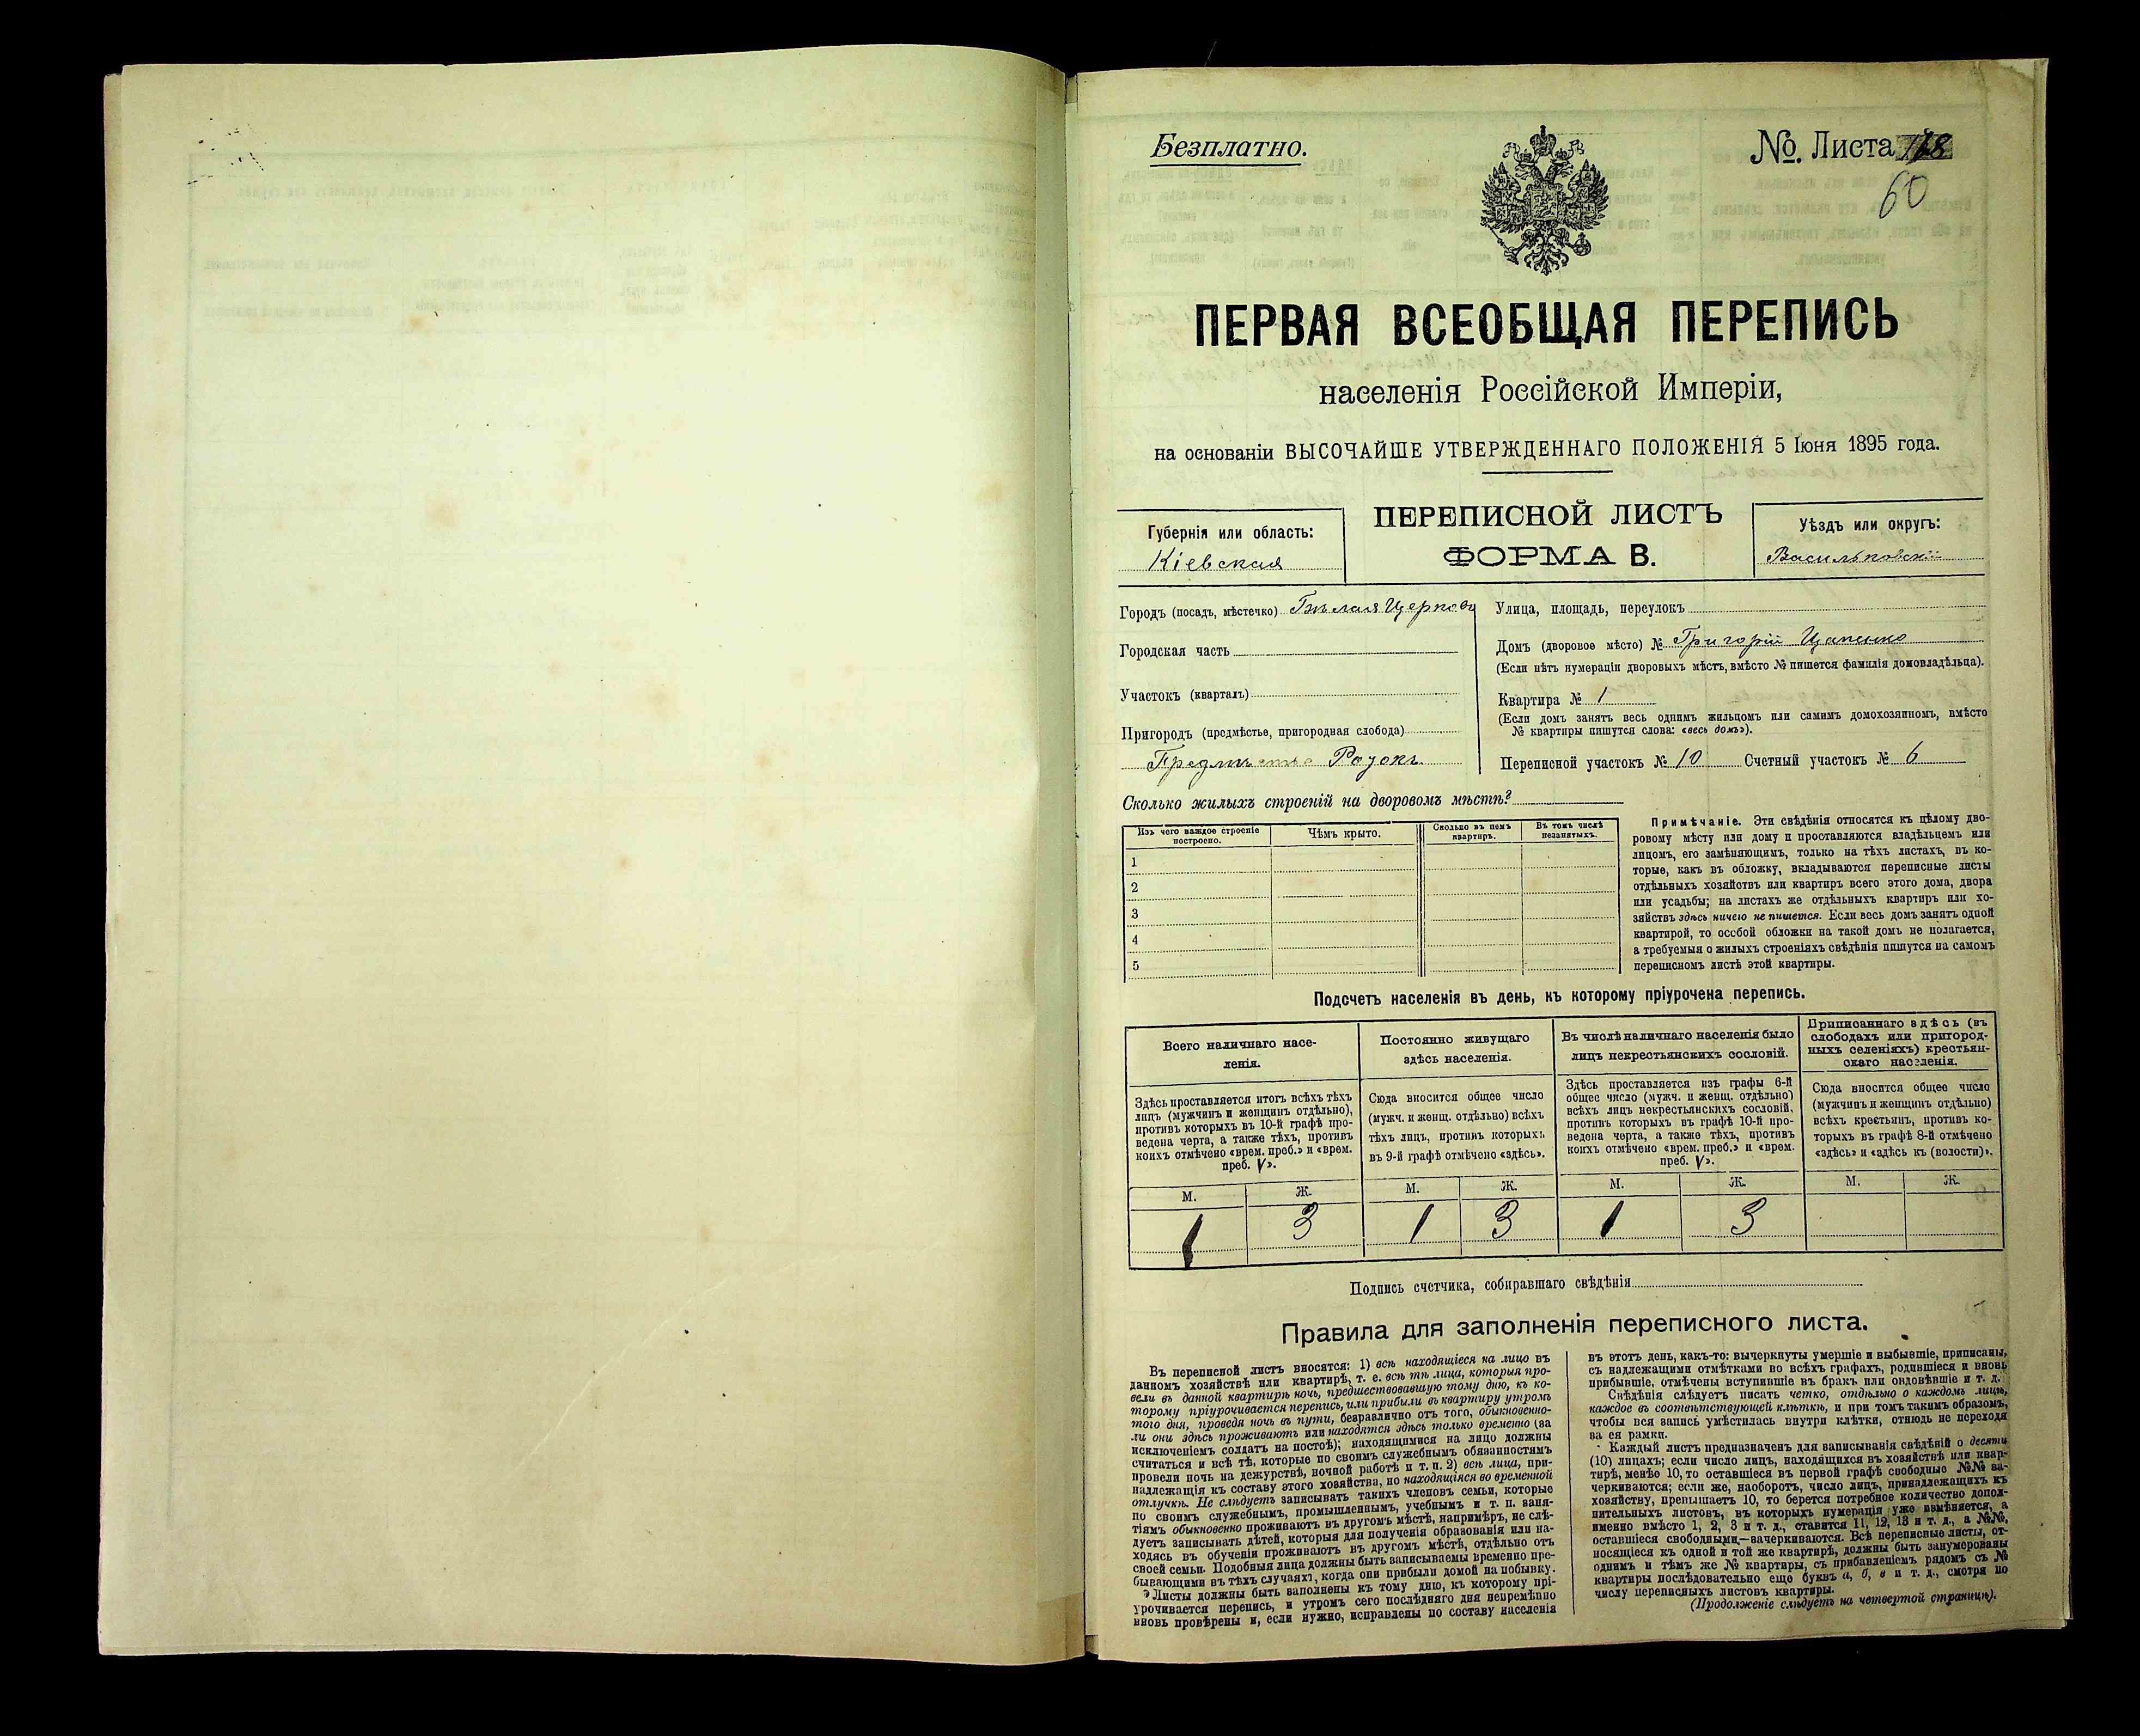 Безплатно.
№. Листа
60
ПЕРВАЯ ВСЕОБЩАЯ ПЕРЕПИСЬ
населенія Россійской Имперіи,
на основаніи ВЫСОЧАЙШЕ УТВЕРЖДЕННАГО ПОЛОЖЕНІЯ 5 Іюня 1895 года.
ПЕРЕПИСНОЙ ЛИСТЪ
ФОРМА В.
Губернія или область:
Кіевская
Уѣздъ или округъ:
Васильковскій
Городъ (посадъ, мѣстечко) Бѣлая Церковь
Городская часть
Участокъ (кварталъ)
Пригородъ (предмѣстье, пригородная слобода)
Предмѣстье Ротокъ
Улица, площадь, переулокъ
Домъ (дворовое мѣсто) № Григорій Цапенко
(Если нѣтъ нумераціи дворовыхъ мѣстъ, вмѣсто № пишется фамилія домовладѣльца).
Квартира № 1
(Если домъ занятъ весь однимъ жильцомъ или самимъ домохозяиномъ, вмѣсто
№ квартиры пишутся слова: «весь домъ»).
Переписной участокъ № 10 Счетный участокъ № 6
Сколько жилыхъ строеній на дворовомъ мѣстѣ?
Изъ чего каждое строеніе
построено.
Чѣмъ крыто.
Сколько въ немъ
квартиръ.
Въ томъ числѣ
незанятыхъ.
1
2
3
4
5
Примѣчаніе. Эти свѣдѣнія относятся къ цѣлому дво-
ровому мѣсту или дому и проставляются владѣльцемъ или
лицомъ, его замѣняющимъ, только на тѣхъ листахъ, въ ко-
торые, какъ въ обложку, вкладываются переписные листы
отдѣльныхъ хозяйствъ или квартиръ всего этого дома, двора
или усадьбы; на листахъ же отдѣльныхъ квартиръ или хо-
зяйствъ здѣсь ничего не пишется. Если весь домъ занятъ одной
квартирой, то особой обложки на такой домъ не полагается,
а требуемыя о жилыхъ строеніяхъ свѣдѣнія пишутся на самомъ
переписномъ листѣ этой квартиры.
Подсчетъ населенія въ день, къ которому пріурочена перепись.
Всего наличнаго насе-
ленія.
Здѣсь проставляется итогъ всѣхъ тѣхъ
лицъ (мужчинъ и женщинъ отдѣльно),
противъ которыхъ въ 10-й графѣ про-
ведена черта, а также тѣхъ, противъ
коихъ отмѣчено «врем. преб.» и «врем.
преб. V».
М. Ж.
1 3
Постоянно живущаго
здѣсь населенія.
Сюда вносится общее число
(мужч. и женщ. отдѣльно) всѣхъ
тѣхъ лицъ, противъ которыхъ
въ 9-й графѣ отмѣчено «здѣсь».
М. Ж.
1 3
Въ числѣ наличнаго населенія было
лицъ некрестьянскихъ сословій.
Здѣсь проставляется изъ графы 6-й
общее число (мужч. и женщ. отдѣльно)
всѣхъ лицъ некрестьянскихъ сословій,
противъ которыхъ въ графѣ 10-й про-
ведена черта, а также тѣхъ, противъ
коихъ отмѣчено «врем. преб.» и «врем.
преб. V».
М. Ж.
1 3
Приписаннаго здѣсь (въ
слободахъ или пригород-
ныхъ селеніяхъ) крестьян-
скаго населенія.
Сюда вносится общее число
(мужчинъ и женщинъ отдѣльно)
всѣхъ крестьянъ, противъ ко-
торыхъ въ графѣ 8-й отмѣчено
«здѣсь» и «здѣсь къ (волости)».
М. Ж.
Подпись счетчика, собиравшаго свѣдѣнія
Правила для заполненія переписного листа.
Въ переписной листъ вносятся: 1) всѣ находящіеся на лицо въ
данномъ хозяйствѣ или квартирѣ, т. е. всѣ тѣ лица, которыя про-
вели въ данной квартирѣ ночь, предшествовавшую тому дню, къ ко-
торому пріурочивается перепись, или прибыли въ квартиру утромъ
того дня, проведя ночь въ пути, безразлично отъ того, обыкновенно-
ли они здѣсь проживаютъ или находятся здѣсь только временно (за
исключеніемъ солдатъ на постоѣ); находящимися на лицо должны
считаться и всѣ тѣ, которые по своимъ служебнымъ обязанностямъ
провели ночь на дежурствѣ, ночной работѣ и т. п. 2) всѣ лица, при-
надлежащія къ составу этого хозяйства, но находящіяся во временной
отлучкѣ. Не слѣдуетъ записывать такихъ членовъ семьи, которые
по своимъ служебнымъ, промышленнымъ, учебнымъ и т. п. заня-
тіямъ обыкновенно проживаютъ въ другомъ мѣстѣ, напримѣръ, не слѣ-
дуетъ записывать дѣтей, которыя для полученія образованія или на-
ходясь въ обученіи проживаютъ въ другомъ мѣстѣ, отдѣльно отъ
своей семьи. Подобныя лица должны быть записываемы временно пре-
бывающими въ тѣхъ случаяхъ, когда они прибыли домой на побывку.
Листы должны быть заполнены къ тому дню, къ которому прі-
урочивается перепись, и утромъ сего послѣдняго дня непремѣнно
вновь провѣрены и, если нужно, исправлены по составу населенія
въ этотъ день, какъ-то: вычеркнуты умершіе и выбывшіе, приписаны,
съ надлежащими отмѣтками во всѣхъ графахъ, родившіеся и вновь
прибывшіе, отмѣчены вступившіе въ бракъ или овдовѣвшіе и т. д.
Свѣдѣнія слѣдуетъ писать четко, отдѣльно о каждомъ лицѣ,
каждое въ соотвѣтствующей клѣткѣ, и при томъ такимъ образомъ,
чтобы вся запись умѣстилась внутри клѣтки, отнюдь не переходя
за ея рамки.
Каждый листъ предназначенъ для записыванія свѣдѣній о десяти
(10) лицахъ; если число лицъ, находящихся въ хозяйствѣ или квар-
тирѣ, менѣе 10, то оставшіеся въ первой графѣ свободные №№ за-
черкиваются; если же, наоборотъ, число лицъ, принадлежащихъ къ
хозяйству, превышаетъ 10, то берется потребное количество допол-
нительныхъ листовъ, въ которыхъ нумерація уже измѣняется, а
именно вмѣсто 1, 2, 3 и т. д., ставится 11, 12, 13 и т. д., а №№,
оставшіеся свободными,—зачеркиваются. Всѣ переписные листы, от-
носящіеся къ одной и той же квартирѣ, должны быть занумерованы
однимъ и тѣмъ же № квартиры, съ прибавленіемъ рядомъ съ №
квартиры послѣдовательно еще буквъ а, б, в и т. д., смотря по
числу переписныхъ листовъ квартиры.
(Продолженіе слѣдуетъ на четвертой страницѣ).